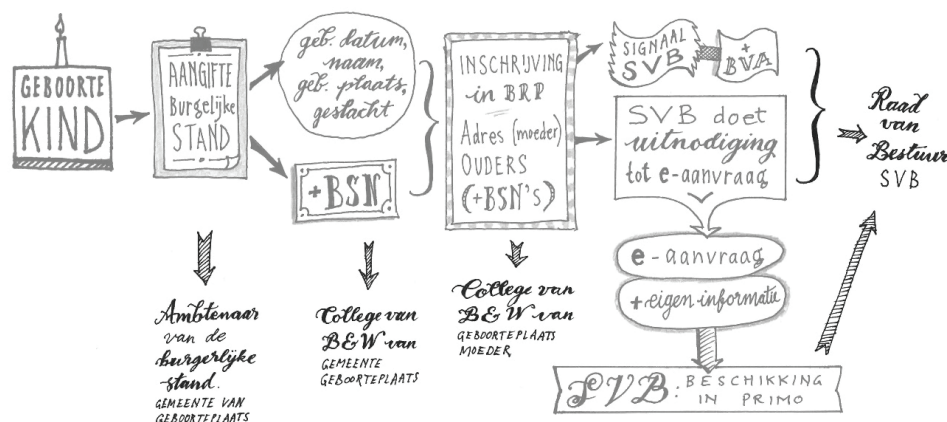 GEBOORTE
KIND
AANGIFTE
Burgelijke
STAND
geb. datum,
naam,
geb. plaats,
geslacht
+BSN
INSCHRIJVING
in BRP
Adres (moeder)
OUDERS
(+BSN's)
SIGNAAL
SVB
+
BVA
SVB doet
uitnodiging
tot e-aanvraag
e-aanvraag
+eigen informatie
SVB: BESCHIKKING
IN PRIMO
Raad
van
Bestuur
SVB
Ambtenaar
van de
burgerlijke
stand.
GEMEENTE VAN
GEBOORTEPLAATS
College van
B&W van
GEMEENTE
GEBOORTEPLAATS
College van
B&W van
GEBOORTEPLAATS
MOEDER